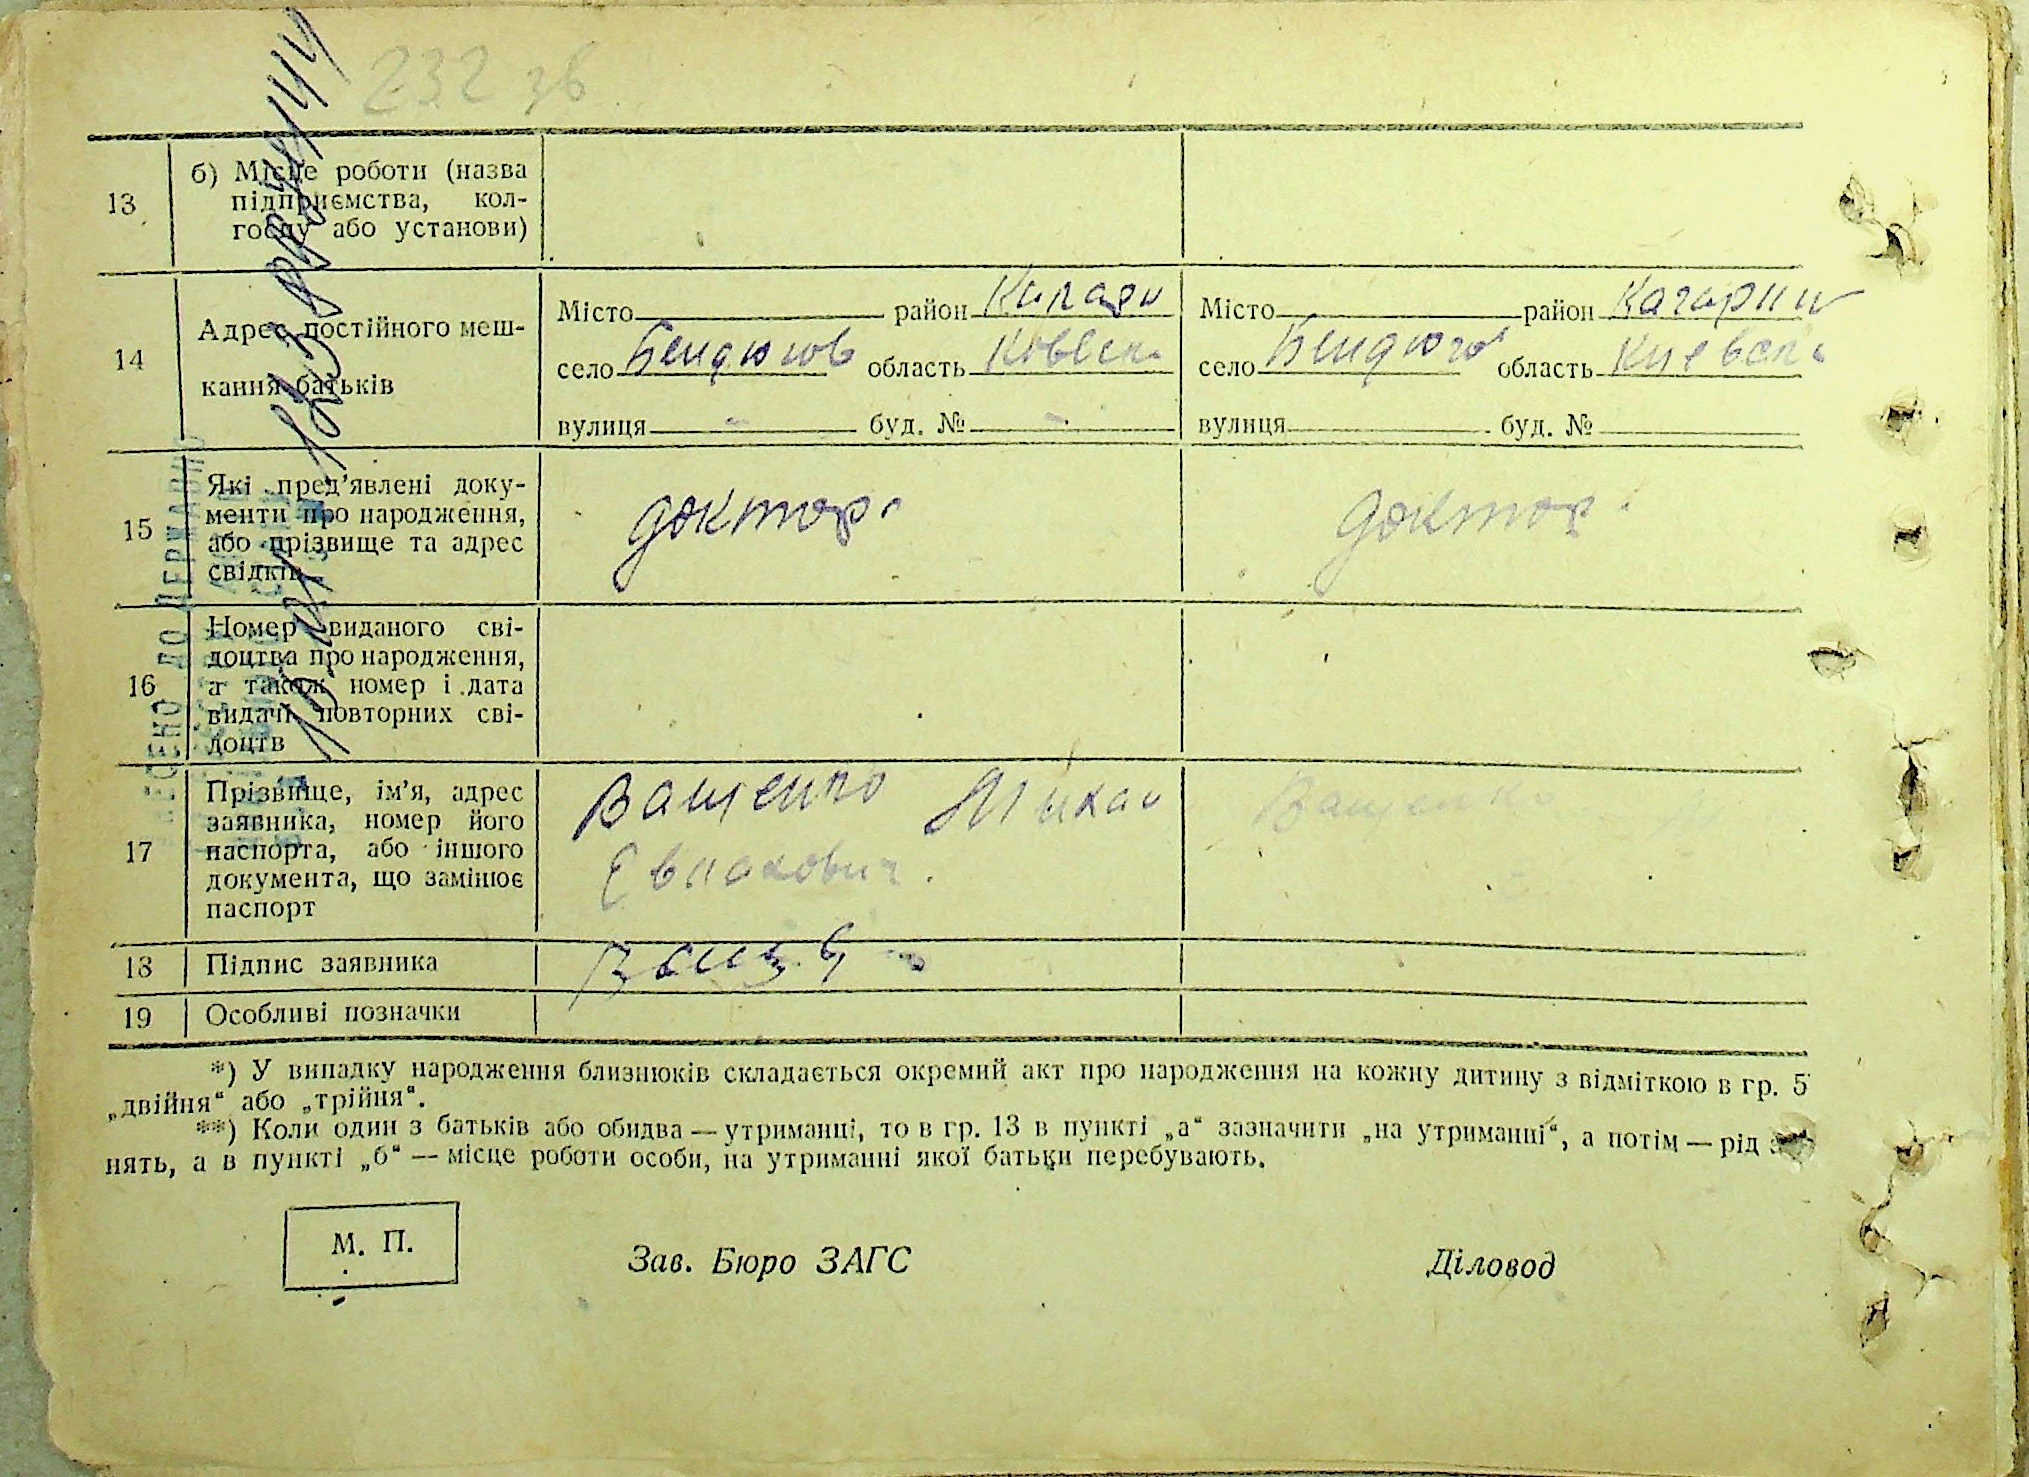 232 зб
13
б) Місце роботи (назва
підприємства, кол-
госпу або установи)
14
Адрес постійного меш-
кання батьків
Місто район
село Бендюгов область
вулиця - буд. № -
Місто район Кагарли
село Бендюго область Киевск.
вулиця буд. №
15
Які пред'явлені доку-
менти про народження,
або прізвище та адрес
свідків
доктор.
доктор.
16
Номер виданого сві-
доцтва про народження,
а також номер і дата
видачі повторних сві-
доцтв
17
Прізвище, ім'я, адрес
заявника, номер його
паспорта, або іншого
документа, що замінює
паспорт
Ващенко Михаи
Ващенко
18
Підпис заявника
19
Особливі позначки
*) У випадку народження близнюків складається окремий акт про народження на кожну дитину з відміткою в гр. 5
„двійня“ або „трійня“.
**) Коли один з батьків або обидва — утриманці, то в гр. 13 в пункті „а“ зазначити „на утриманні“, а потім — рід
нять, а в пункті „б“ — місце роботи особи, на утриманні якої батьки перебувають.
М. П.
Зав. Бюро ЗАГС
Діловод
ДО ДЕРЖАВНО